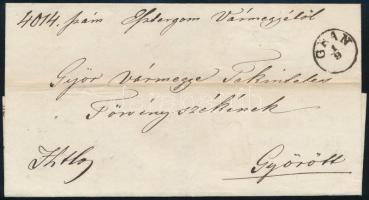 4014. szám Esztergom Vármegyétől
GRAN
1/9
Győr vármegye Tekintetes
Törvényszékének
Győrött